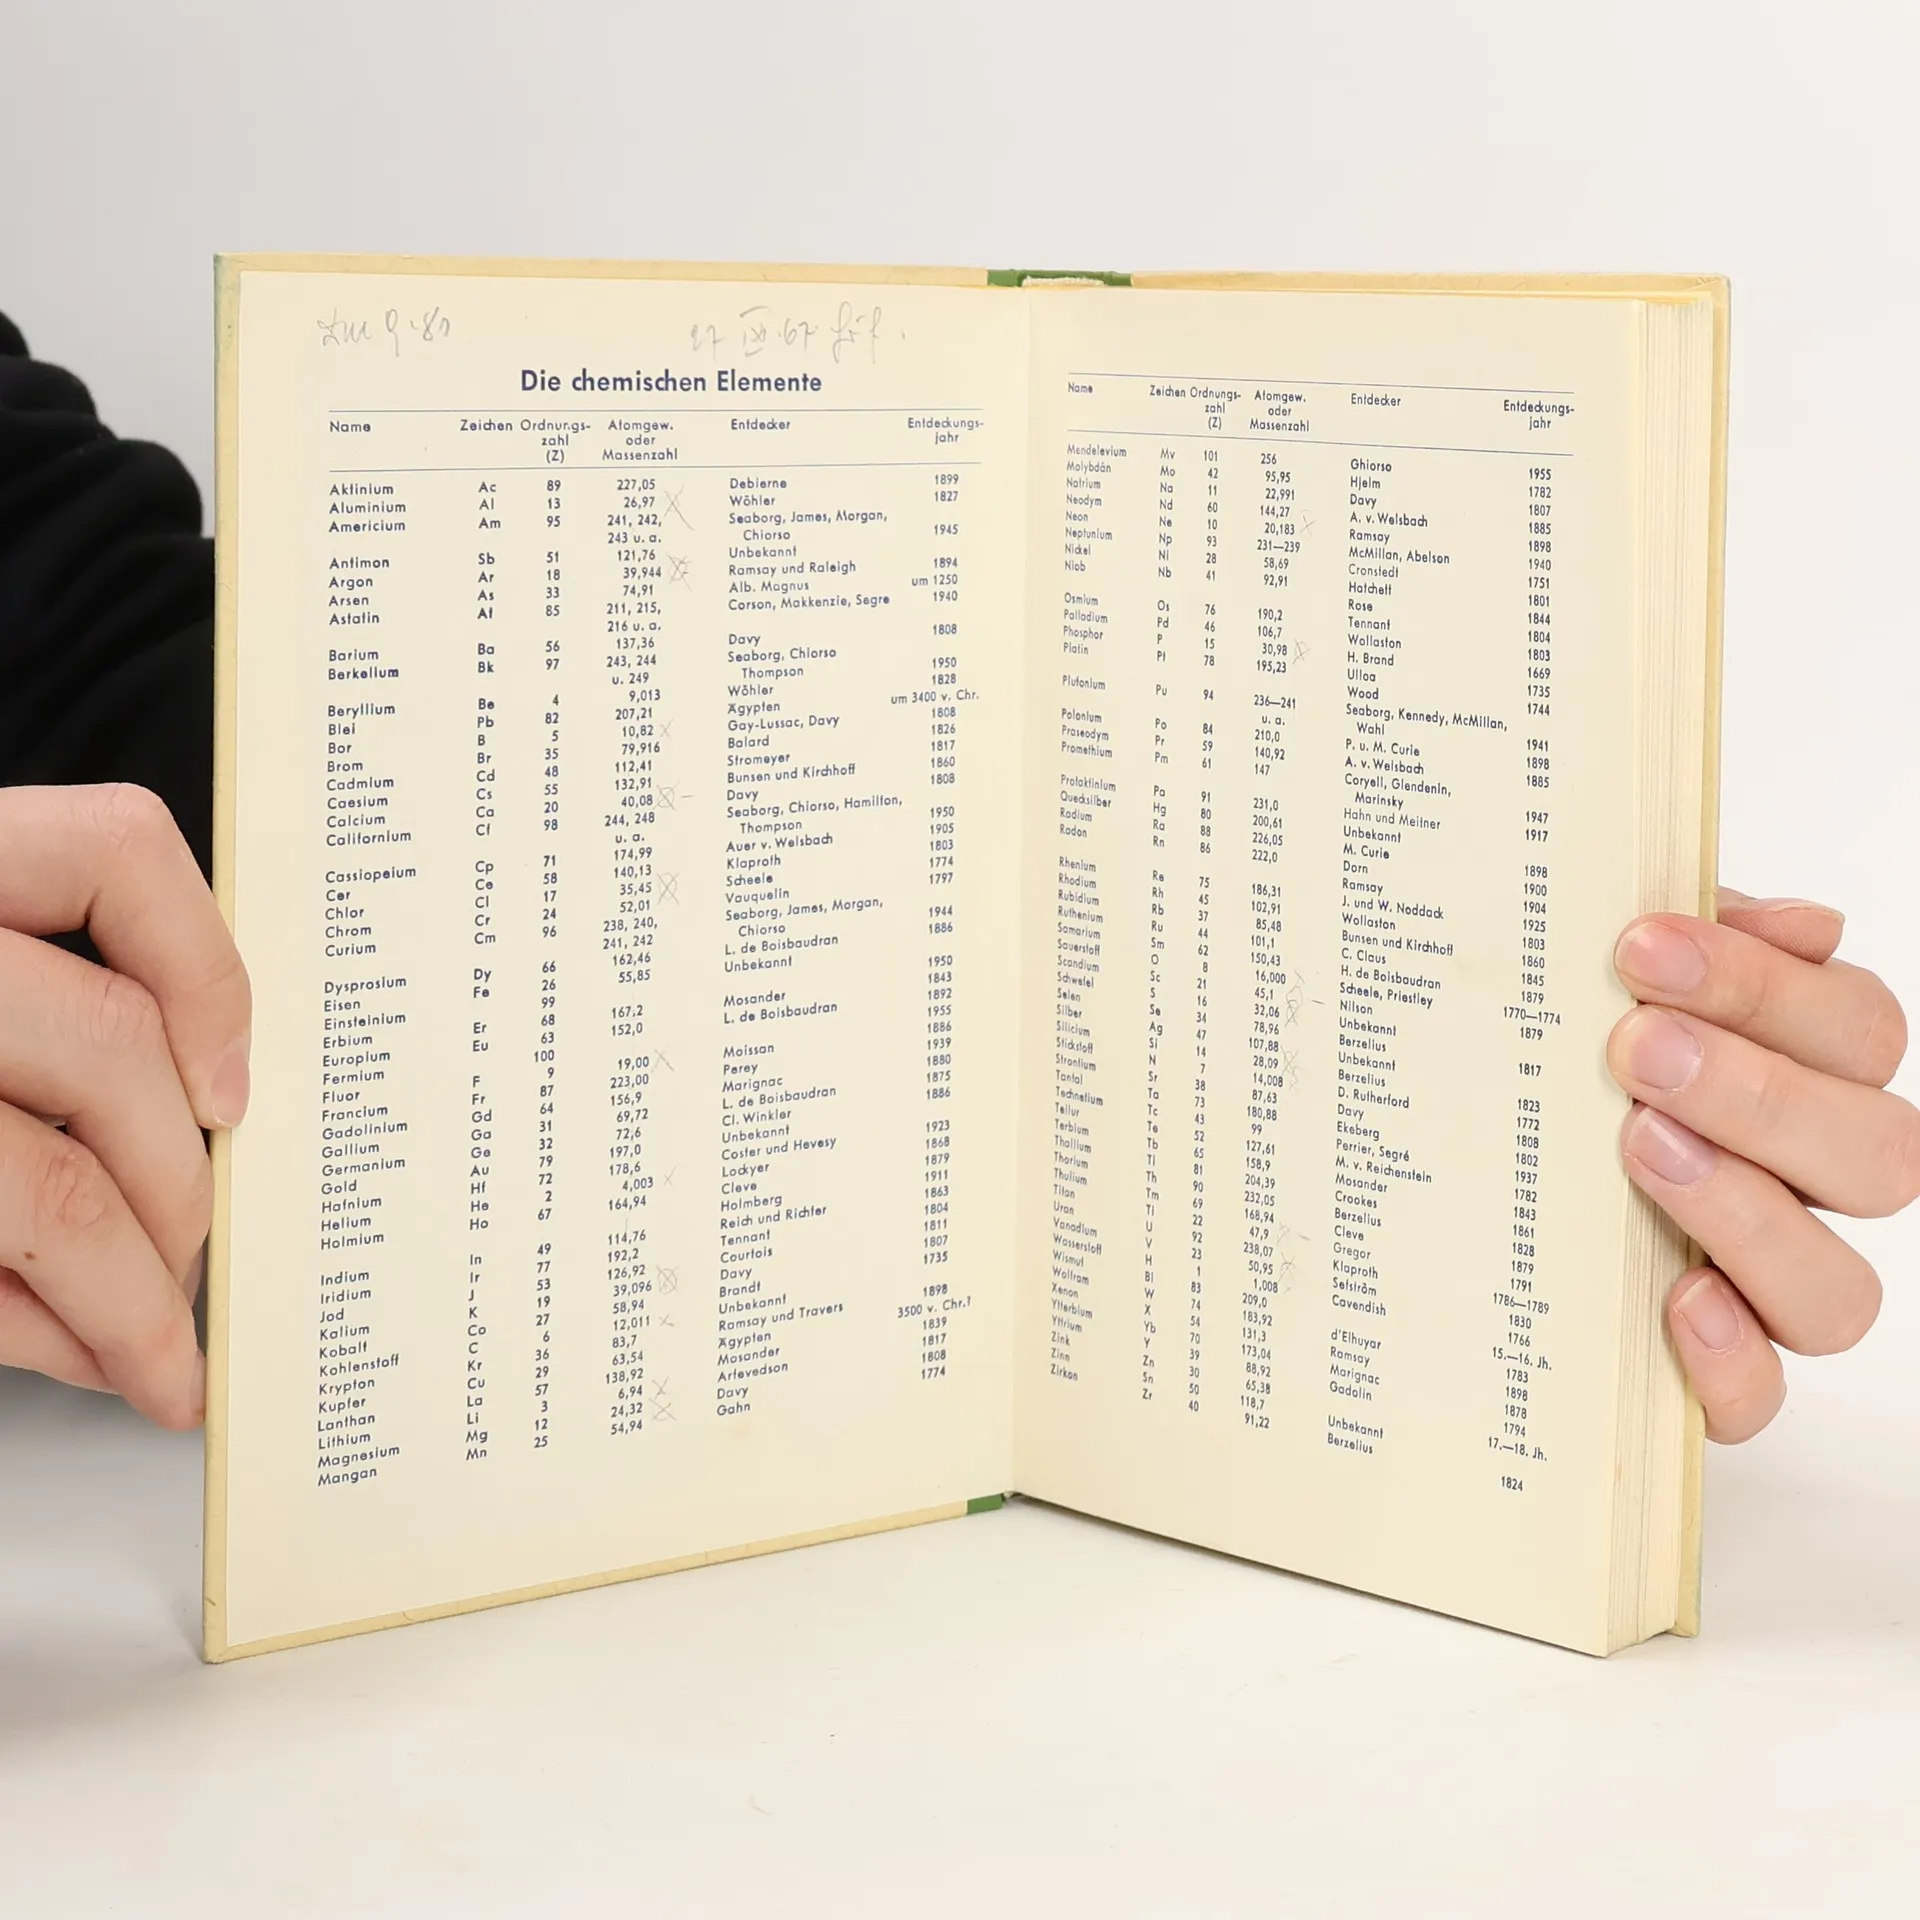 Die chemischen Elemente
Name Zeichen Ordnungs-zahl (Z) Atomgew. oder Massenzahl Entdecker Entdeckungs-jahr
Aktinium Ac 89 227,05 Debierne 1899
Aluminium Al 13 26,97 Wöhler 1827
Americium Am 95 241, 242, Seaborg, James, Morgan,
243 u. a. Chiorso 1945
Antimon Sb 51 121,76 Unbekannt
Argon Ar 18 39,944 Ramsay und Raleigh 1894
Arsen As 33 74,91 Alb. Magnus um 1250
Astatin At 85 211, 215, Corson, Makkenzie, Segre 1940
216 u. a.
Barium Ba 56 137,36 Davy 1808
Berkelium Bk 97 243, 244 Seaborg, Chiorso
u. 249 Thompson 1950
Beryllium Be 4 9,013 Wöhler 1828
Blei Pb 82 207,21 Ägypten um 3400 v. Chr.
Bor B 5 10,82 Gay-Lussac, Davy 1808
Brom Br 35 79,916 Balard 1826
Cadmium Cd 48 112,41 Stromeyer 1817
Caesium Cs 55 132,91 Bunsen und Kirchhoff 1860
Calcium Ca 20 40,08 Davy 1808
Californium Cf 98 244, 248 Seaborg, Chiorso, Hamilton,
u. a. Thompson 1950
Cassiopeium Cp 71 174,99 Auer v. Welsbach 1905
Cer Ce 58 140,13 Klaproth 1803
Chlor Cl 17 35,45 Scheele 1774
Chrom Cr 24 52,01 Vauquelin 1797
Curium Cm 96 238, 240, Seaborg, James, Morgan,
241, 242 Chiorso 1944
Dysprosium Dy 66 162,46 L. de Boisbaudran 1886
Eisen Fe 26 55,85 Unbekannt
Einsteinium 99 1950
Erbium Er 68 167,2 Mosander 1843
Europium Eu 63 152,0 L. de Boisbaudran 1892
Fermium 100 1955
Fluor F 9 19,00 Moissan 1886
Francium Fr 87 223,00 Perey 1939
Gadolinium Gd 64 156,9 Marignac 1880
Gallium Ga 31 69,72 L. de Boisbaudran 1875
Germanium Ge 32 72,6 Cl. Winkler 1886
Gold Au 79 197,0 Unbekannt
Hafnium Hf 72 178,6 Coster und Hevesy 1923
Helium He 2 4,003 Lockyer 1868
Holmium Ho 67 164,94 Cleve 1879
Holmberg 1911
Indium In 49 114,76 Reich und Richter 1863
Iridium Ir 77 192,2 Tennant 1804
Jod J 53 126,92 Courtois 1811
Kalium K 19 39,096 Davy 1807
Kobalt Co 27 58,94 Brandt 1735
Kohlenstoff C 6 12,011 Unbekannt
Krypton Kr 36 83,7 Ramsay und Travers 1898
Kupfer Cu 29 63,54 Ägypten 3500 v. Chr.?
Lanthan La 57 138,92 Mosander 1839
Lithium Li 3 6,94 Arfvedson 1817
Magnesium Mg 12 24,32 Davy 1808
Mangan Mn 25 54,94 Gahn 1774
Name Zeichen Ordnungs-zahl (Z) Atomgew. oder Massenzahl Entdecker Entdeckungs-jahr
Mendelevium Mv 101 256 Ghiorso 1955
Molybdän Mo 42 95,95 Hjelm 1782
Natrium Na 11 22,991 Davy 1807
Neodym Nd 60 144,27 A. v. Welsbach 1885
Neon Ne 10 20,183 Ramsay 1898
Neptunium Np 93 231—239 McMillan, Abelson 1940
Nickel Ni 28 58,69 Cronstedt 1751
Niob Nb 41 92,91 Hatchett 1801
Rose 1844
Osmium Os 76 190,2 Tennant 1804
Palladium Pd 46 106,7 Wollaston 1803
Phosphor P 15 30,98 H. Brand 1669
Platin Pt 78 195,23 Ulloa 1735
Wood 1744
Plutonium Pu 94 236—241 Seaborg, Kennedy, McMillan,
u. a. Wahl 1941
Polonium Po 84 210,0 P. u. M. Curie 1898
Praseodym Pr 59 140,92 A. v. Welsbach 1885
Promethium Pm 61 147 Coryell, Glendenin,
Marinsky 1947
Protaktinium Pa 91 231,0 Hahn und Meitner 1917
Quecksilber Hg 80 200,61 Unbekannt
Radium Ra 88 226,05 M. Curie 1898
Radon Rn 86 222,0 Dorn 1900
Ramsay 1904
Rhenium Re 75 186,31 J. und W. Noddack 1925
Rhodium Rh 45 102,91 Wollaston 1803
Rubidium Rb 37 85,48 Bunsen und Kirchhoff 1860
Ruthenium Ru 44 101,1 C. Claus 1845
Samarium Sm 62 150,43 H. de Boisbaudran 1879
Sauerstoff O 8 16,000 Scheele, Priestley 1770—1774
Scandium Sc 21 45,1 Nilson 1879
Schwefel S 16 32,06 Unbekannt
Selen Se 34 78,96 Berzelius 1817
Silber Ag 47 107,88 Unbekannt
Silicium Si 14 28,09 Berzelius 1823
Stickstoff N 7 14,008 D. Rutherford 1772
Strontium Sr 38 87,63 Davy 1808
Tantal Ta 73 180,88 Ekeberg 1802
Technetium Tc 43 99 Perrier, Segré 1937
Tellur Te 52 127,61 M. v. Reichenstein 1782
Terbium Tb 65 158,9 Mosander 1843
Thallium Tl 81 204,39 Crookes 1861
Thorium Th 90 232,05 Berzelius 1828
Thulium Tm 69 168,94 Cleve 1879
Titan Ti 22 47,9 Gregor 1791
Uran U 92 238,07 Klaproth 1786—1789
Vanadium V 23 50,95 Sefström 1830
Wasserstoff H 1 1,008 Cavendish 1766
Wismut Bi 83 209,0 15.—16. Jh.
Wolfram W 74 183,92 d'Elhuyar 1783
Xenon X 54 131,3 Ramsay 1898
Ytterbium Yb 70 173,04 Marignac 1878
Yttrium Y 39 88,92 Gadolin 1794
Zink Zn 30 65,38 17.—18. Jh.
Zinn Sn 50 118,7 Unbekannt
Zirkon Zr 40 91,22 Berzelius 1824